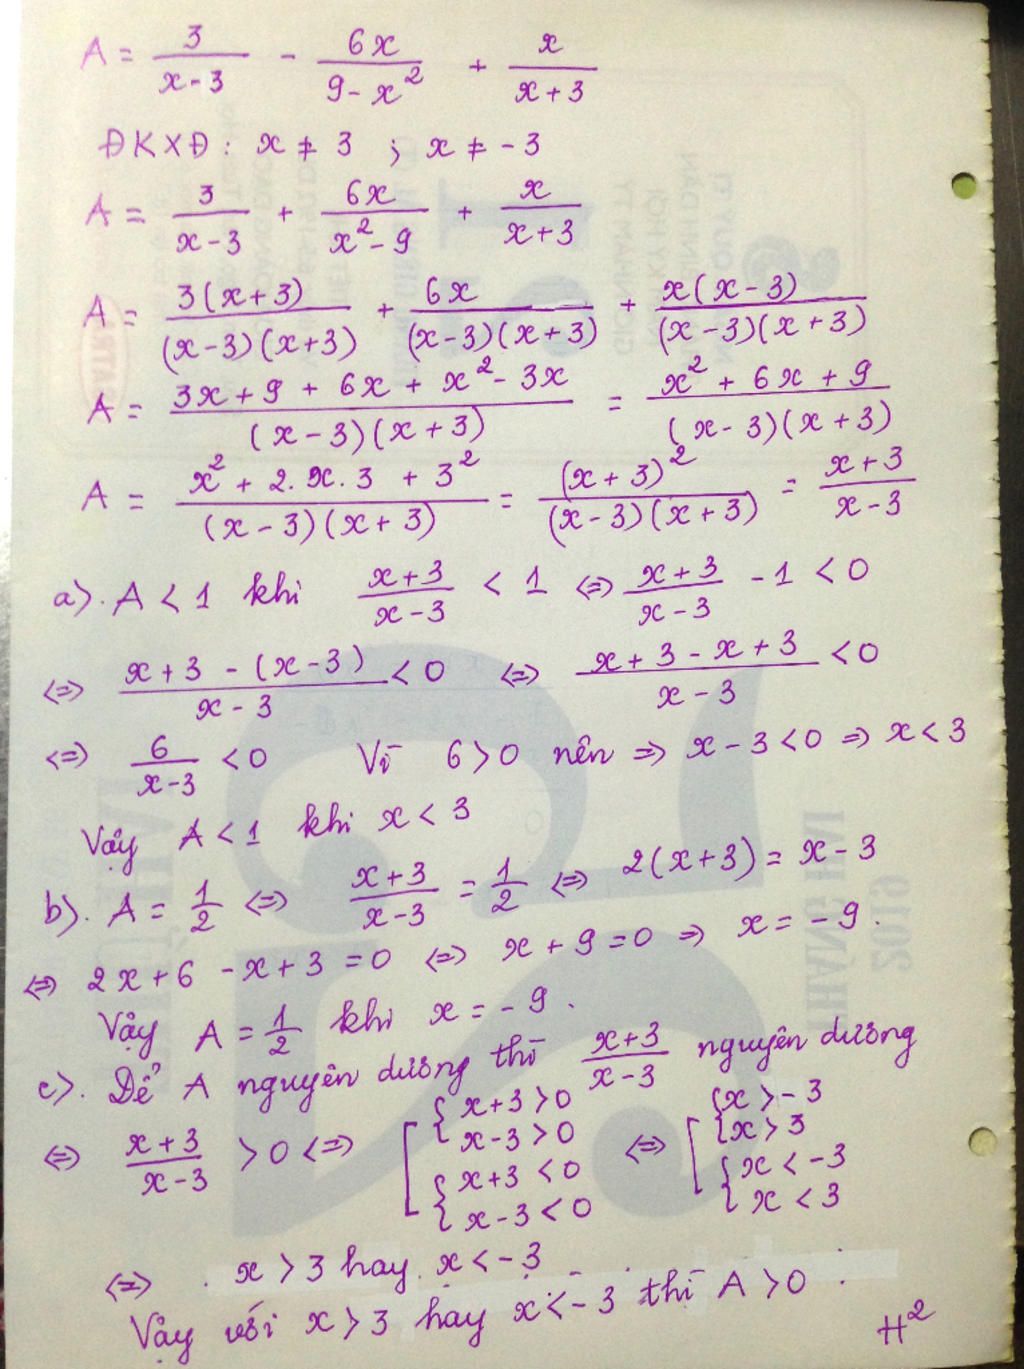 A = 3/(x-3) - 6x/(9-x²) + x/(x+3)
ĐKXĐ: x ≠ 3 ; x ≠ -3
A = 3/(x-3) + 6x/(x²-9) + x/(x+3)
A = 3(x+3)/((x-3)(x+3)) + 6x/((x-3)(x+3)) + x(x-3)/((x-3)(x+3))
A = (3x+9+6x+x²-3x)/((x-3)(x+3)) = (x²+6x+9)/((x-3)(x+3))
A = (x²+2.x.3+3²)/((x-3)(x+3)) = (x+3)²/((x-3)(x+3)) = (x+3)/(x-3)
a). A < 1 khi (x+3)/(x-3) < 1 <=> (x+3)/(x-3) - 1 < 0
<=> (x+3-(x-3))/(x-3) < 0 <=> (x+3-x+3)/(x-3) < 0
<=> 6/(x-3) < 0 Vì 6 > 0 nên => x-3 < 0 => x < 3
Vậy A < 1 khi x < 3
b). A = 1/2 <=> (x+3)/(x-3) = 1/2 <=> 2(x+3) = x-3
<=> 2x+6 -x+3 = 0 <=> x+9 = 0 => x = -9.
Vậy A = 1/2 khi x = -9.
c). Để A nguyên dương thì (x+3)/(x-3) nguyên dương
<=> (x+3)/(x-3) > 0 <=> [ { x+3 > 0 { x-3 > 0 { x+3 < 0 { x-3 < 0 <=> [ { x > -3 { x > 3 { x < -3 { x < 3
<=> x > 3 hay x < -3
Vậy với x > 3 hay x < -3 thì A > 0
H²
THÁNG HAI
2019